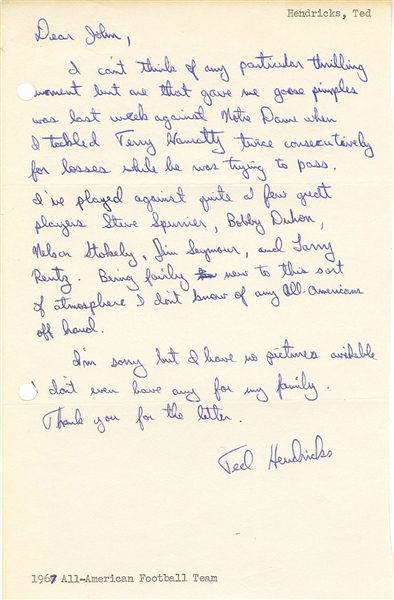 Hendricks, Ted
Dear John,
I can't think of any particular thrilling
moment but one that gave me goose pimples
was last week against Notre Dame when
I tackled Terry Hanratty twice consecutively
for losses while he was trying to pass.
I've played against quite a few great
players Steve Spurrier, Bobby Duhon,
Nelson Stokely, Jim Seymour, and Larry
Rentz. Being fairly new to this sort
of atmosphere I don't know of any All-Americans
off hand.
I'm sorry but I have no pictures available
I don't even have any for my family.
Thank you for the letter.
Ted Hendricks
1967 All-American Football Team